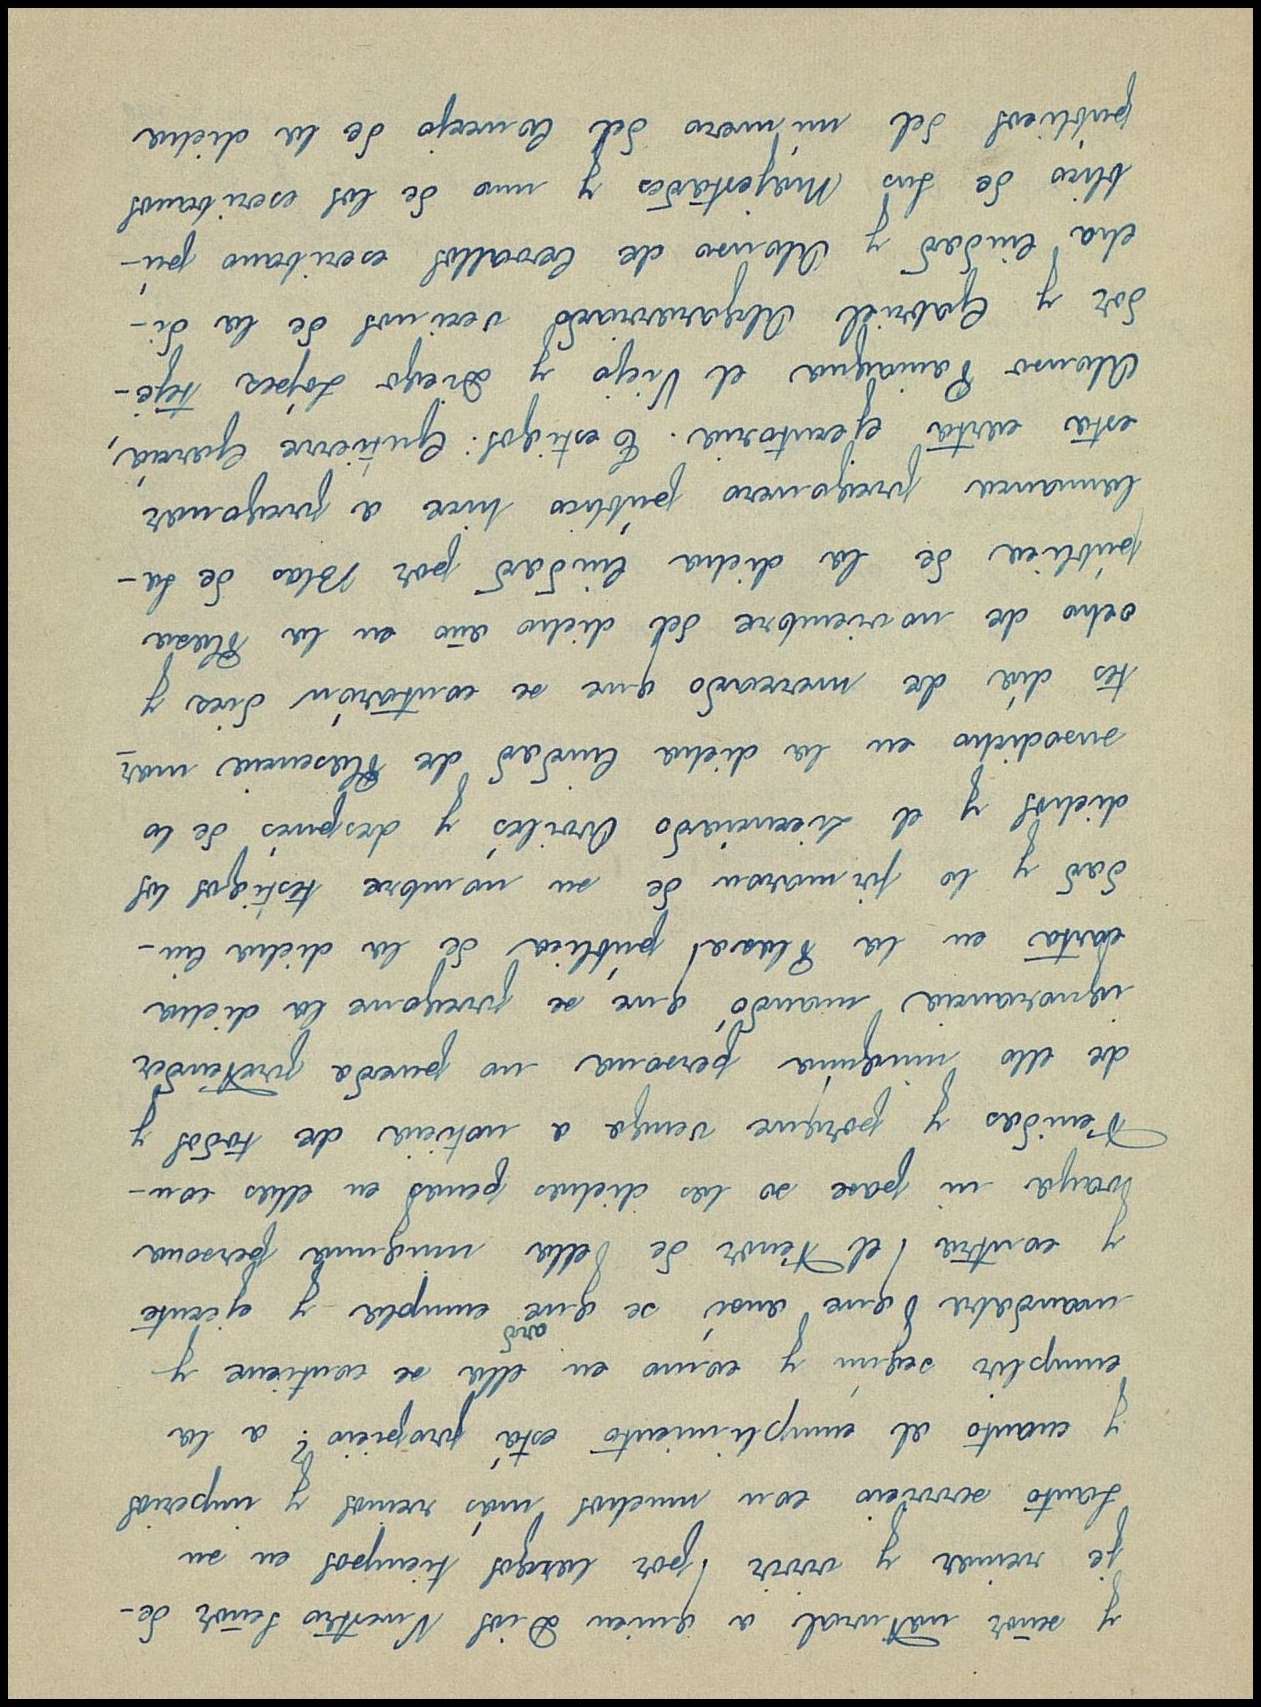 y señor natural a quien Dios Nuestro Señor de-
je reinar y vivir por largos tiempos en su
Santo servicio con muchos más reinos y imperios
y cuanto al cumplimiento está propicio? a la
cumplir según y como en ella se contiene y
mandaba que ansí se guarde cumpla y ejecute
y contra el tenor de ella ninguna persona
vaya ni pase so las dichas penas en ellas con-
tenidas y porque venga a noticia de todos y
de ello ninguna persona no pueda pretender
ignorancia mandó que se pregone la dicha
carta en la Plaza pública de la dicha Ciu-
dad y lo firmaron de su nombre testigos los
dichos y el Licenciado Avilés y después de lo
susodicho en la dicha Ciudad de Plasencia mar-
tes día de mercado que se contarón diez y
ocho de noviembre del dicho año en la Plaza
pública de la dicha Ciudad por Blas de Sa-
lamanca pregonero público hice a pregonar
esta carta ejecutoria. Testigos: Gutierre García,
Alonso Paniagua el Viejo y Diego López teje-
dor y Gabriel vecinos de la di-
cha Ciudad y Alonso de Cevallos escribano pú-
blico de Sus Majestades y uno de los escribanos
públicos del número del Concejo de la dicha